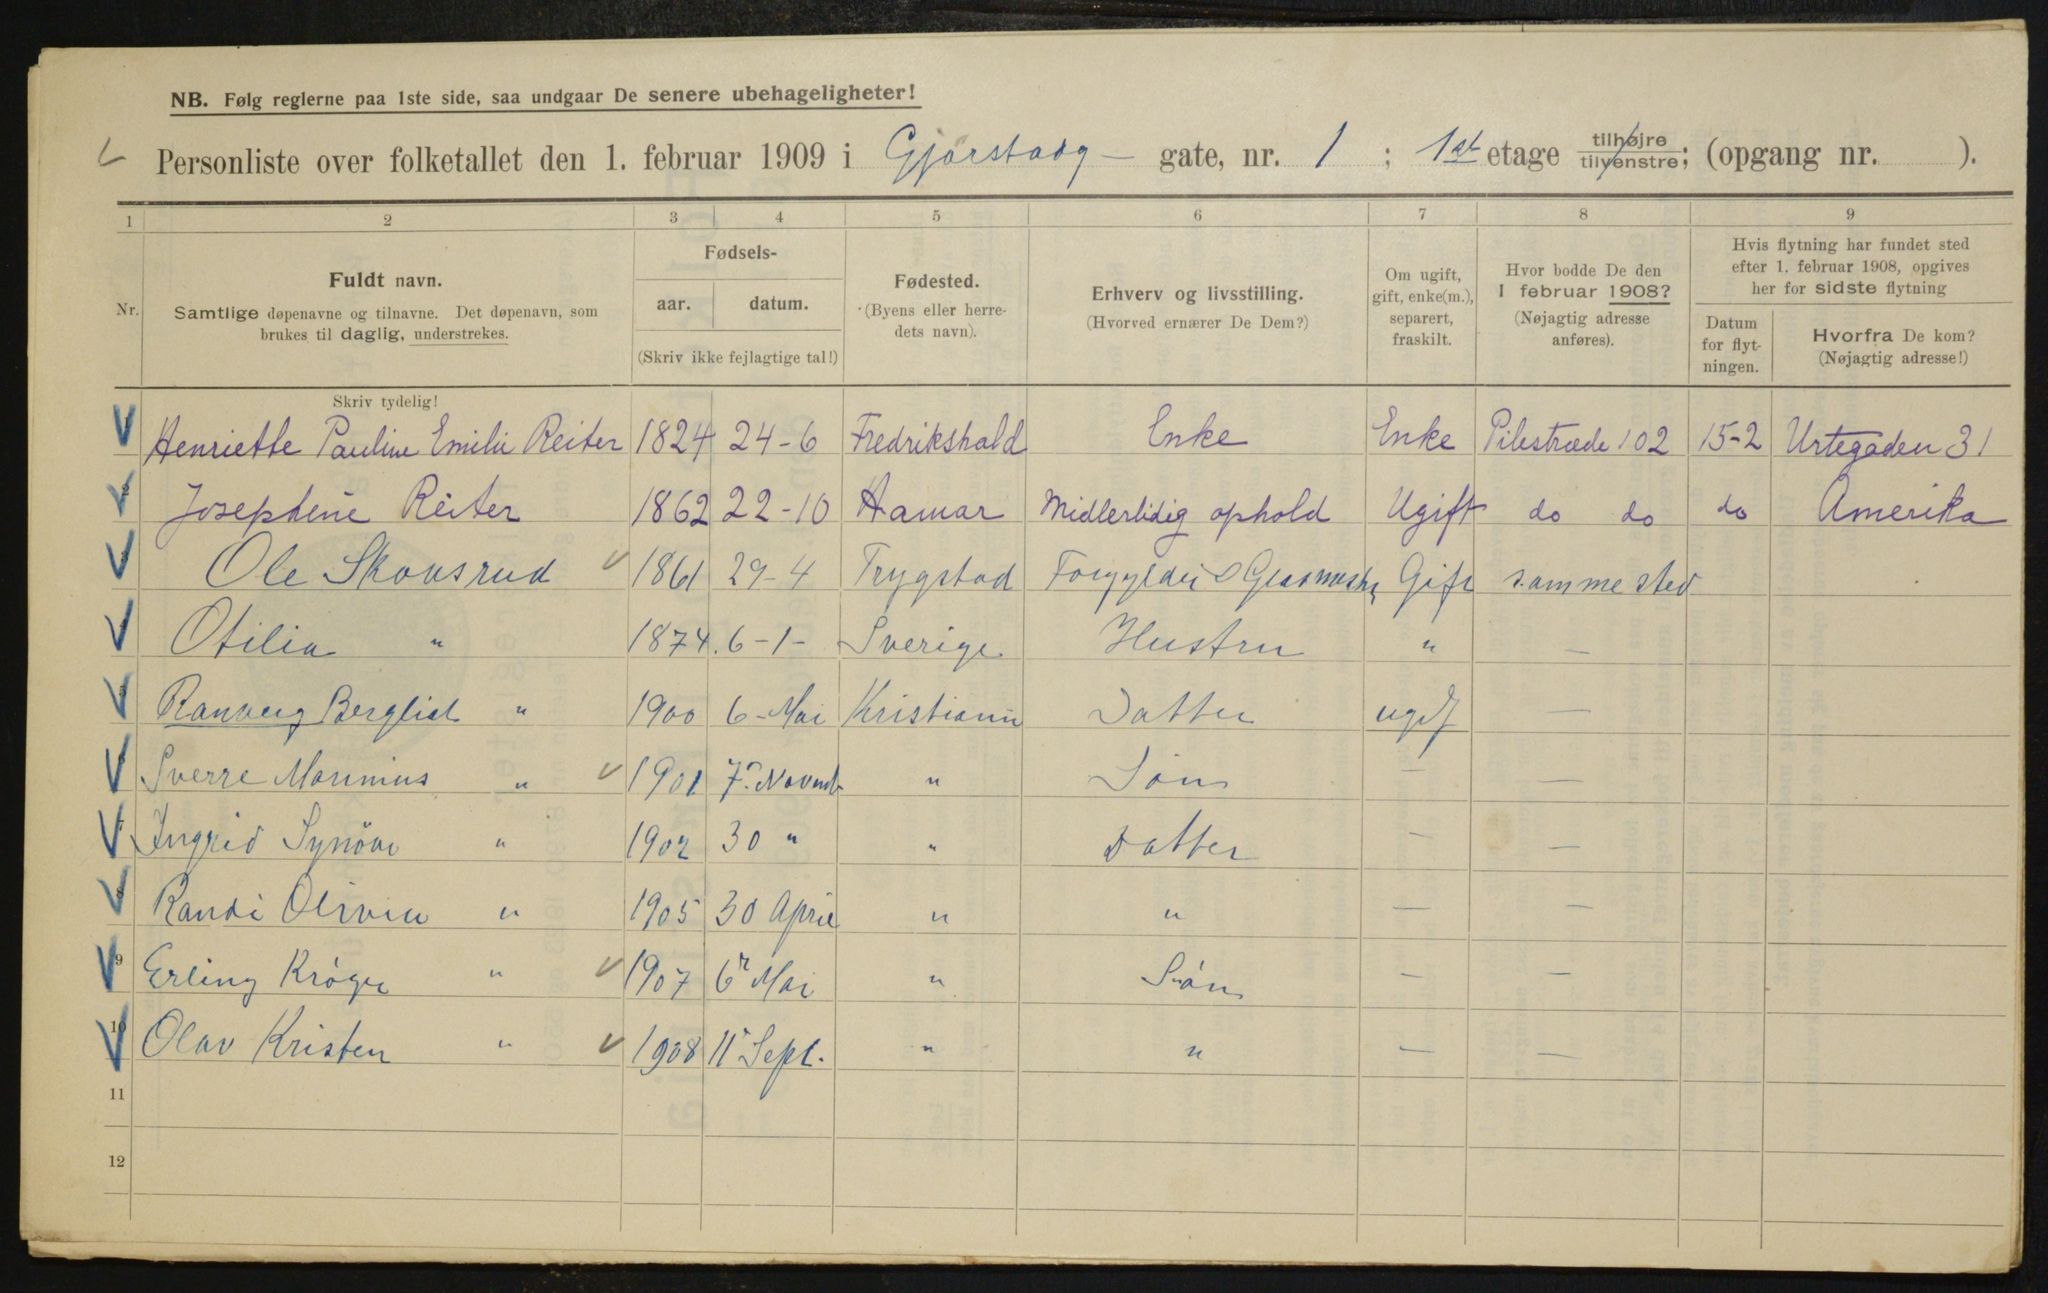 NB. Følg reglerne paa 1ste side, saa undgaar De senere ubehageligheter!
Personliste over folketallet den 1. februar 1909 i Gjørstadg — gate, nr. 1 ; 1st etage tilhøjre tilvenstre; (opgang nr. ).
1 2 3 4 5 6 7 8 9
Nr.
Fuldt navn.
Samtlige døpenavne og tilnavne. Det døpenavn, som
brukes til daglig, understrekes.
Skriv tydelig!
Fødsels-
aar. datum.
(Skriv ikke fejlagtige tal!)
Fødested.
(Byens eller herre-
dets navn).
Erhverv og livsstilling.
(Hvorved ernærer De Dem?)
Om ugift,
gift, enke(m.),
separert,
fraskilt.
Hvor bodde De den
1 februar 1908?
(Nøjagtig adresse
anføres).
Hvis flytning har fundet sted
efter 1. februar 1908, opgives
her for sidste flytning
Datum
for flyt-
ningen.
Hvorfra De kom?
(Nøjagtig adresse!)
Henriette Pauline Emilie Reiter 1824 24-6 Fredrikshald Enke Enke Pilestræde 102 15-2 Urtegaden 31
Josephine Reiter 1862 22-10 Hamar Midlertidig ophold Ugift do do do Amerika
Ole Skousrud 1861 29-4 Trygstad Forgylder Gift sammested
Otilia " 1874. 6-1- Sverige Hustru " —
Ranveig Bergliot " 1900 6-Mai Kristiania Datter ugift —
Sverre Marinius " 1901 7. Novemb " Søn — —
Ingrid Synöve " 1902 30 " " Datter — —
8 Randi Olivia " 1905 30 April " " — —
9 Erling Krøger " 1907 6 Mai " Søn — —
10 Olav Kristen " 1908 11 Sept. " " — —
11
12